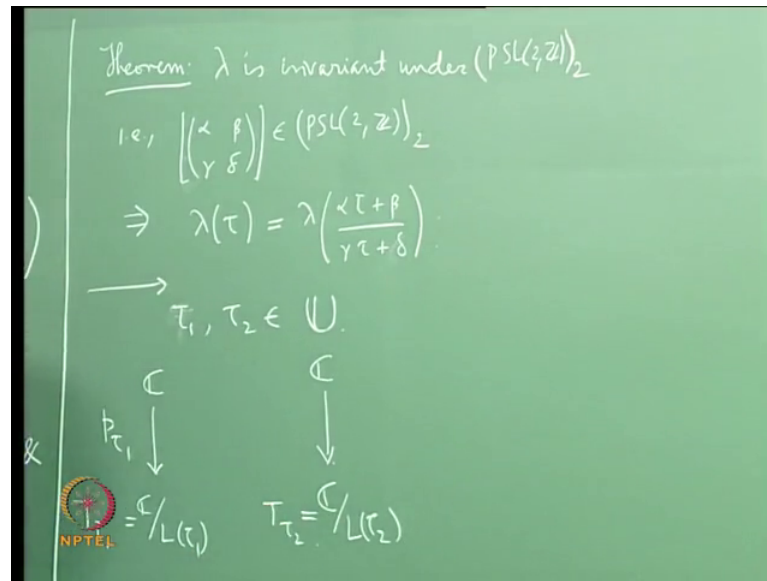 Theorem: λ is invariant under (PSL(2,ℤ))₂
i.e., [(α β
γ δ)] ∈ (PSL(2,ℤ))₂
⇒ λ(τ) = λ((ατ+β)/(γτ+δ)).
→
τ₁, τ₂ ∈ U.
)
ℂ ℂ
p_τ₁ ↓ ↓
&
= ℂ/L(τ₁) T_τ₂ = ℂ/L(τ₂)
NPTEL